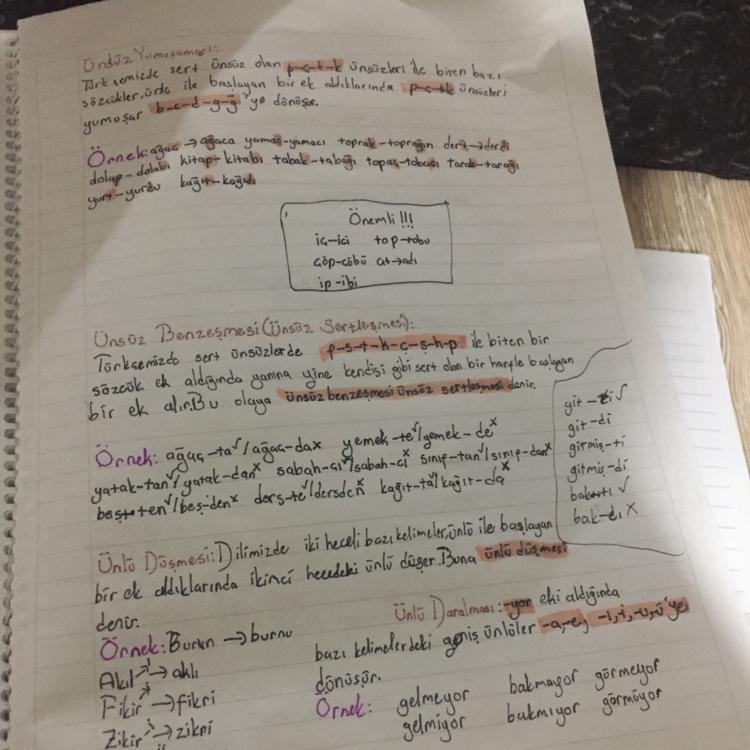 Ünsüz Yumuşaması:
Türkçemizde sert ünsüz olan p-ç-t-k ünsüzleri ile biten bazı
sözcükler, ünlü ile başlayan bir ek aldıklarında p-ç-t-k ünsüzleri
yumuşar b-c-d-g-ğ'ye dönüşür.
Örnek: ağaç → ağaca yamaç-yamacı toprak-toprağın dert → derdi
dolap-dolabı kitap-kitabı tabak-tabağı topaç-tobacı tarak-tarağı
yurt-yurdu kağıt-kağıdı
Önemli !!!
iç-ici top→tobu
çöp-çöbü at→adı
ip-ibi
Ünsüz Benzeşmesi (Ünsüz Sertleşmesi):
Türkçemizde sert ünsüzlerde f-s-t-k-ç-ş-h-p ile biten bir
sözcük ek aldığında yanına yine kendisi gibi sert olan bir harfle başlayan
bir ek alır. Bu olaya ünsüz benzeşmesi ünsüz sertleşmesi denir.
git-ti √
git-di
gitmiş-ti
gitmiş-di
baktı √
bak-dı X
Örnek: ağaç-ta √ / ağaç-da x yemek-te √ / yemek-de x
yatak-tan √ / yatak-dan x sabah-çı √ / sabah-cı x sınıf-tan √ / sınıf-dan x
beş-ten √ / beş-den x ders-te √ / dersden x kağıt-ta √ / kağıt-da x
Ünlü Düşmesi: Dilimizde iki heceli bazı kelimeler, ünlü ile başlayan
bir ek aldıklarında ikinci hecedeki ünlü düşer. Buna ünlü düşmesi
denir.
Örnek: Burun → burnu
Akıl → aklı
Fikir → fikri
Zikir → zikri
Ünlü Daralması: -yor eki aldığında
bazı kelimelerdeki geniş ünlüler -a,-e, -ı,-i,-u,-ü'ye
dönüşür.
Örnek: gelmeyor bakmayor görmeyor
gelmiyor bakmıyor görmüyor